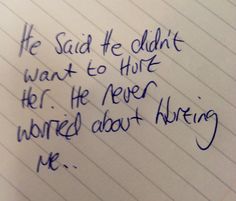 He Said He didn't
want to Hurt
Her. He never
worried about Hurting
Me..